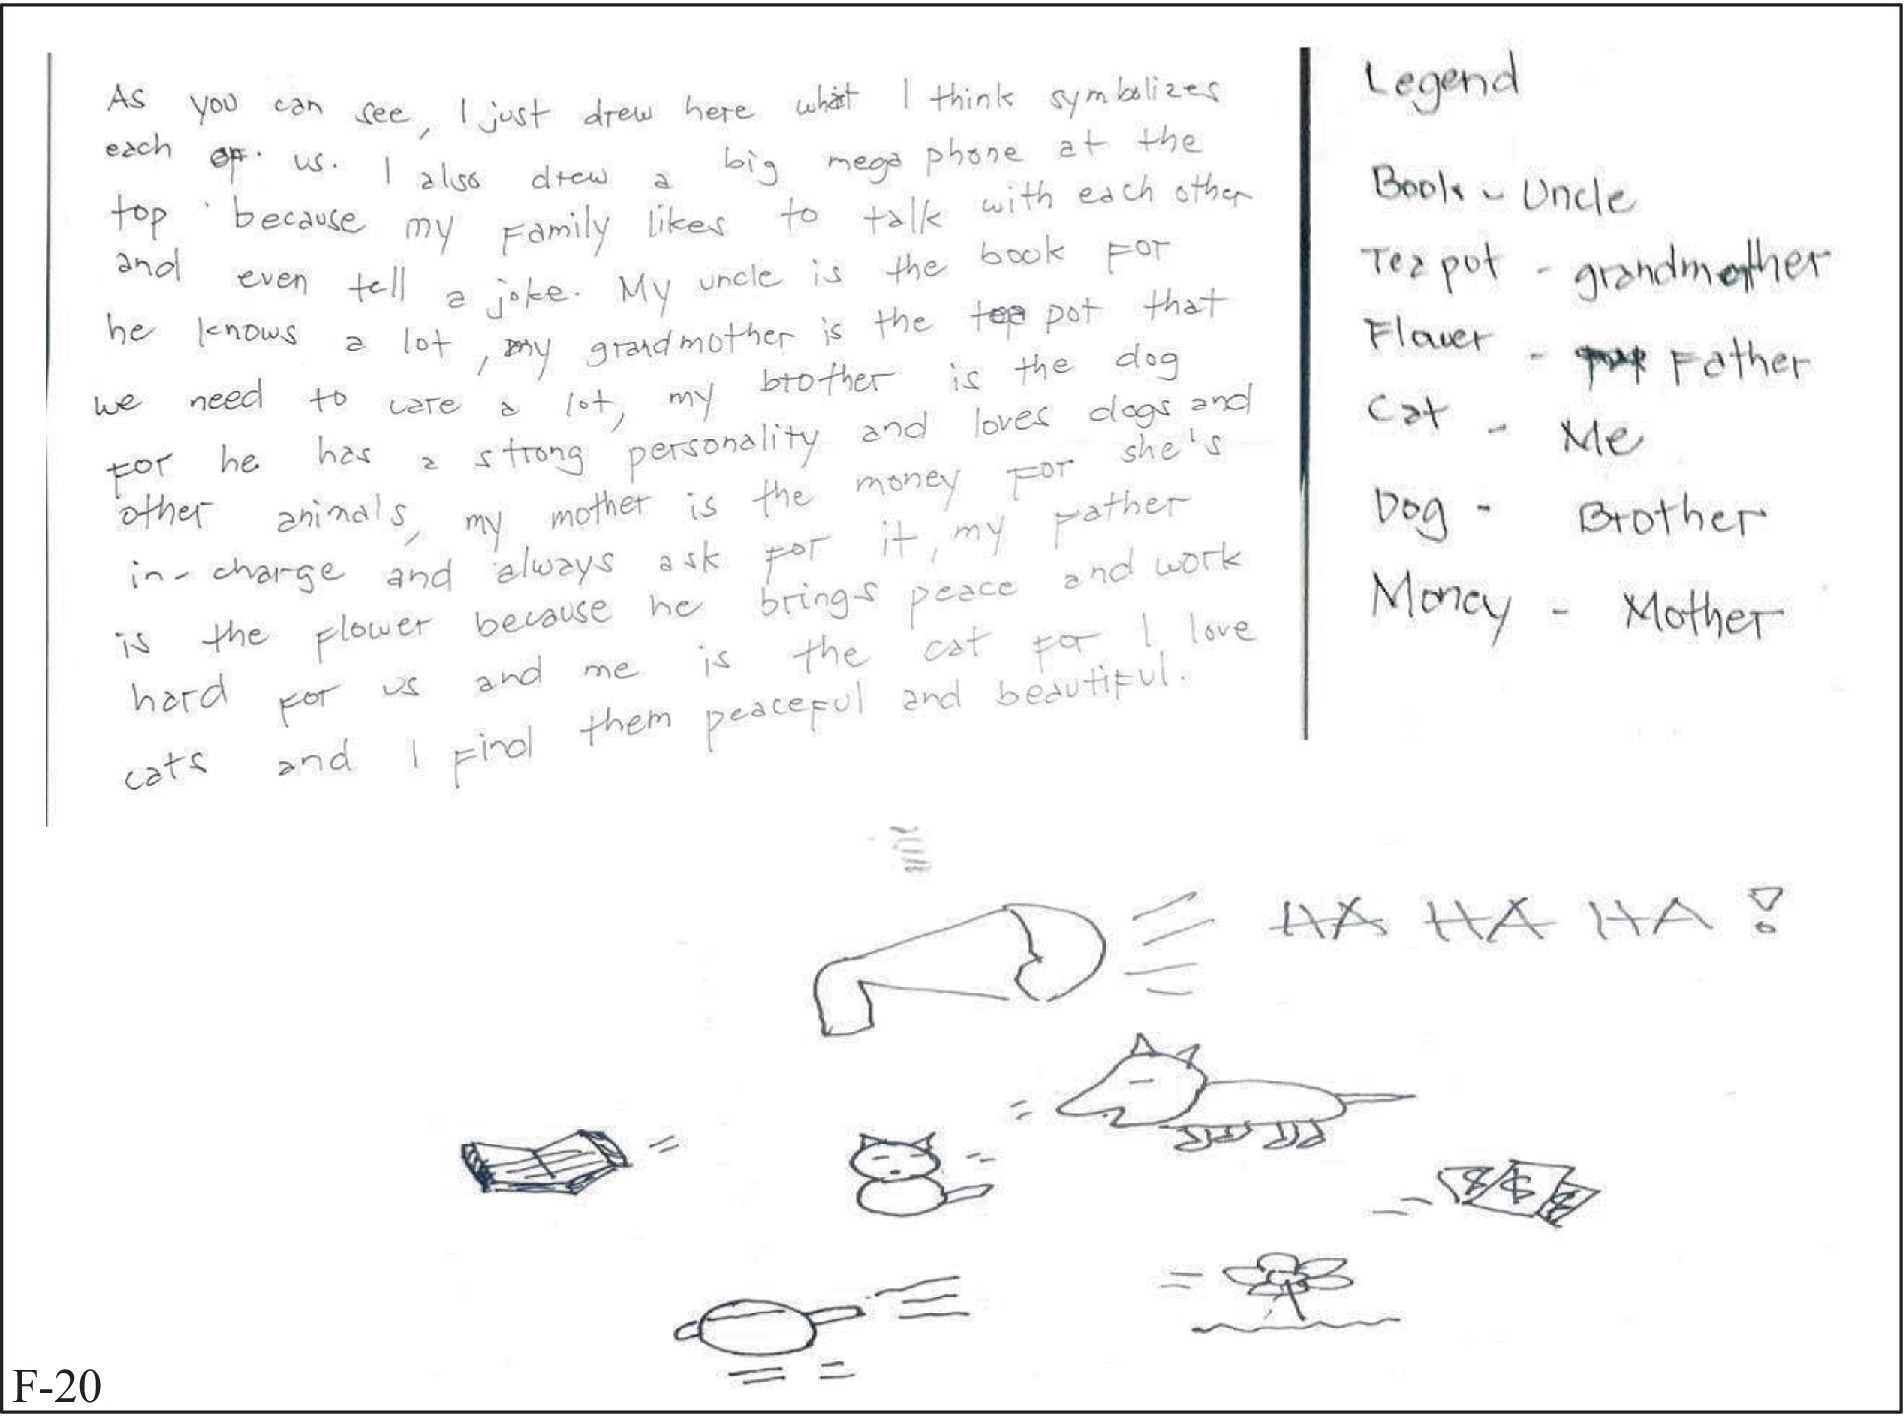 As you can see, I just drew here what I think symbolizes
each of us. I also drew a big mega phone at the
top because my family likes to talk with each other
and even tell a joke. My uncle is the book for
he knows a lot, my grandmother is the tea pot that
we need to care a lot, my brother is the dog
for he has a strong personality and loves dogs and
other animals, my mother is the money for she's
in-charge and always ask for it, my father
is the flower because he brings peace and work
hard for us and me is the cat for I love
cats and I find them peaceful and beautiful.
Legend
Book - Uncle
Tea pot - grandmother
Flower - Father
Cat - Me
Dog - Brother
Money - Mother
HA HA HA !
$ $ $
F-20